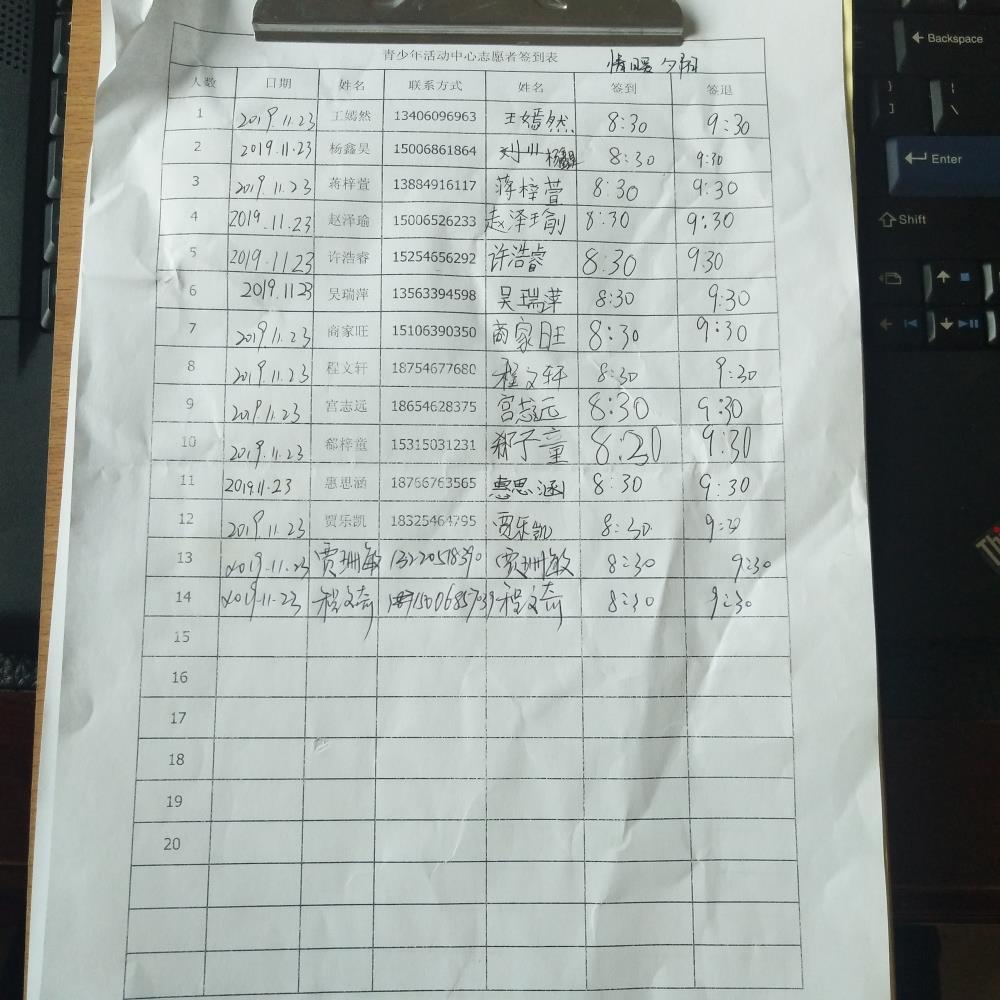 青少年活动中心志愿者签到表 情暖夕阳
人数 日期 姓名 联系方式 姓名 签到 签退
1 2019.11.23 王嫣然 13406096963 王嫣然 8:30 9:30
2 2019.11.23 杨鑫昊 15006861864 杨鑫昊 8:30 9:30
3 2019.11.23 蒋梓萱 13884916117 蒋梓萱 8:30 9:30
4 2019.11.23 赵泽瑜 15006526233 赵泽瑜 8:30 9:30
5 2019.1123 许浩睿 15254656292 许浩睿 8:30 9:30
6 2019.1123 吴瑞萍 13563394598 吴瑞萍 8:30 9:30
7 2019.11.23 商家旺 15106390350 商家旺 8:30 9:30
8 2019.11.23 程文轩 18754677680 程文轩 8:30 9:30
9 2019.11.23 宫志远 18654628375 宫志远 8:30 9:30
10 2019.11.23 郗梓童 15315031231 郗子童 8:20 9:30
11 201911.23 惠思涵 18766763565 惠思涵 8:30 9:30
12 2019.11.23 贾乐凯 18325464795 贾乐凯 8:30 9:30
13 2019.11.23 贾珊敏 13220518390 贾珊敏 8:30 9:30
14 2019.11.23 程文奇 15006857039 程文奇 8:30 9:30
15
16
17
18
19
20
Backspace
Enter
Shift